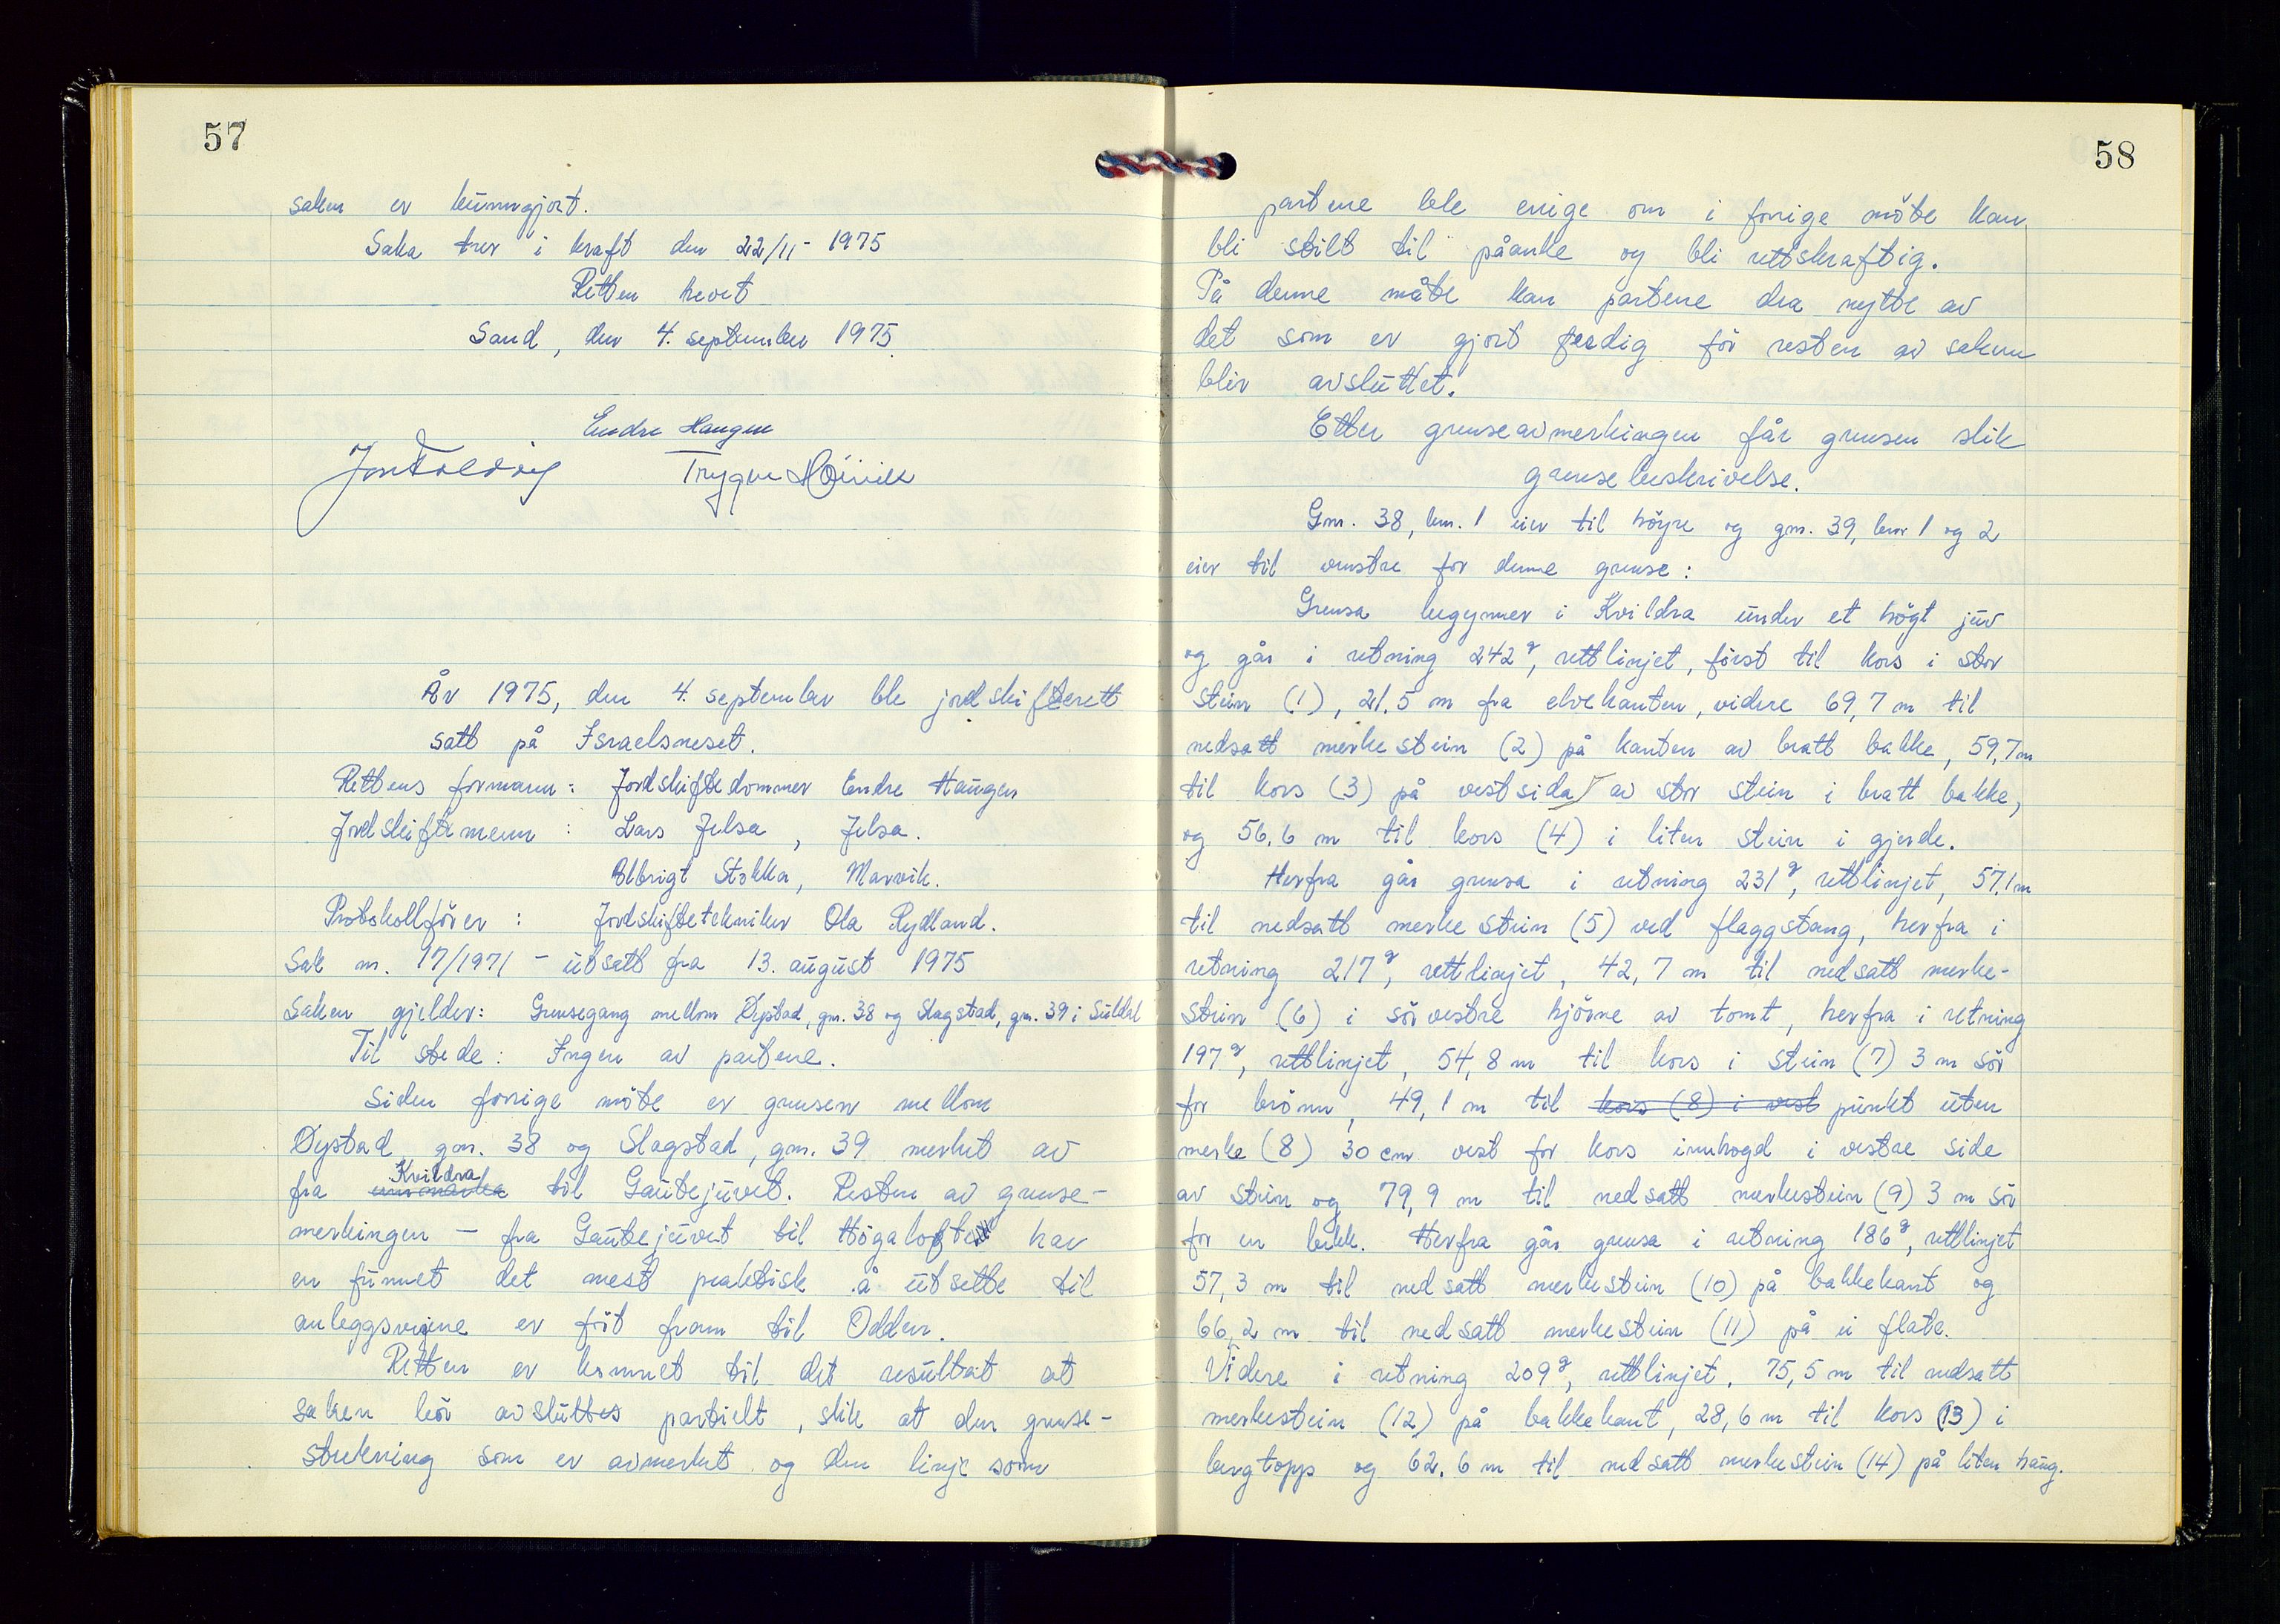 57
saken er kunngjort.
Saka trer i kraft den 22/11- 1975
Retten hevet
Sand, den 4. september 1975.
Endre Haugen
Trygve Høivik
År 1975, den 4. september ble jordskifterett
satt på Israelsneset.
Rettens formann: Jordskiftedommer Endre Haugen
Jordskiftemenn: Lars Jelsa, Jelsa.
Olbrigt Stokka, Marvik.
Protokollfører: Jordskiftetekniker Ola Rydland.
Sak nr. 17/1971 - utsatt fra 13. august 1975
Saken gjelder: Grensegang mellom Øystad, gnr. 38 og Slagstad, gnr. 39 i Suldal
Til stede: Ingen av partene.
Siden forrige møte er grensen mellom
Øystad gnr. 38 og Slagstad, gnr. 39 merket av
fra Kvildra til Gautejuvet. Resten av grense-
merkingen - fra Gautejuvet til Høgalofte har
en funnet det mest praktisk å utsette til
anleggsveiene er ført fram til Odden.
Retten er kommet til det resultat at
saken bør avsluttes partielt, slik at den grense-
strekning som er avmerket og den linje som
58
partene ble enige om i forrige møte kan
bli stilt til påanke og bli rettskraftig.
På denne måte kan partene dra nytte av
det som er gjort ferdig før resten av saken
blir avsluttet.
Etter grenseavmerkingen får grensen slik
grensebeskrivelse.
Gnr. 38, bnr. 1 eier til høyre og gnr. 39, bnr 1 og 2
eier til venstre for denne grense:
Grensa begynner i Kvildra under et høgt juv
og går i retning 242g, rettlinjet, først til kors i stor
stein (1), 21.5 m fra elvekanten, videre 69,7 m til
nedsatt merkestein (2) på kanten av bratt bakke, 59,7m
til kors (3) på vestsida av stor stein i bratt bakke,
og 56,6 m til kors (4) i liten stein i gjerde.
Herfra går grensa i retning 231g, rettlinjet, 57,1m
til nedsatt merkestein (5) ved flaggstang, herfra i
retning 217g, rettlinjet, 42,7 m til nedsatt merke-
stein (6) i sørvestre hjørne av tomt, herfra i retning
197g, rettlinjet, 54,8 m til kors i stein (7) 3 m sør
for brønn, 49,1 m til kors (8) i vest punkt uten
merke (8) 30 cm vest for kors innhogd i vestre side
av stein og 79,9 m til nedsatt merkestein (9) 3 m sør
for en bekk. Herfra går grensa i retning 186g, rettlinjet
57,3 m til nedsatt merkestein (10) på bakkekant og
66,2 m til nedsatt merkestein (11) på ei flate.
Videre i retning 209g, rettlinjet, 75,5 m til nedsatt
merkestein (12) på bakkekant, 28,6 m til kors (13) i
bergtopp og 62.6 m til nedsatt merkestein (14) på liten haug.